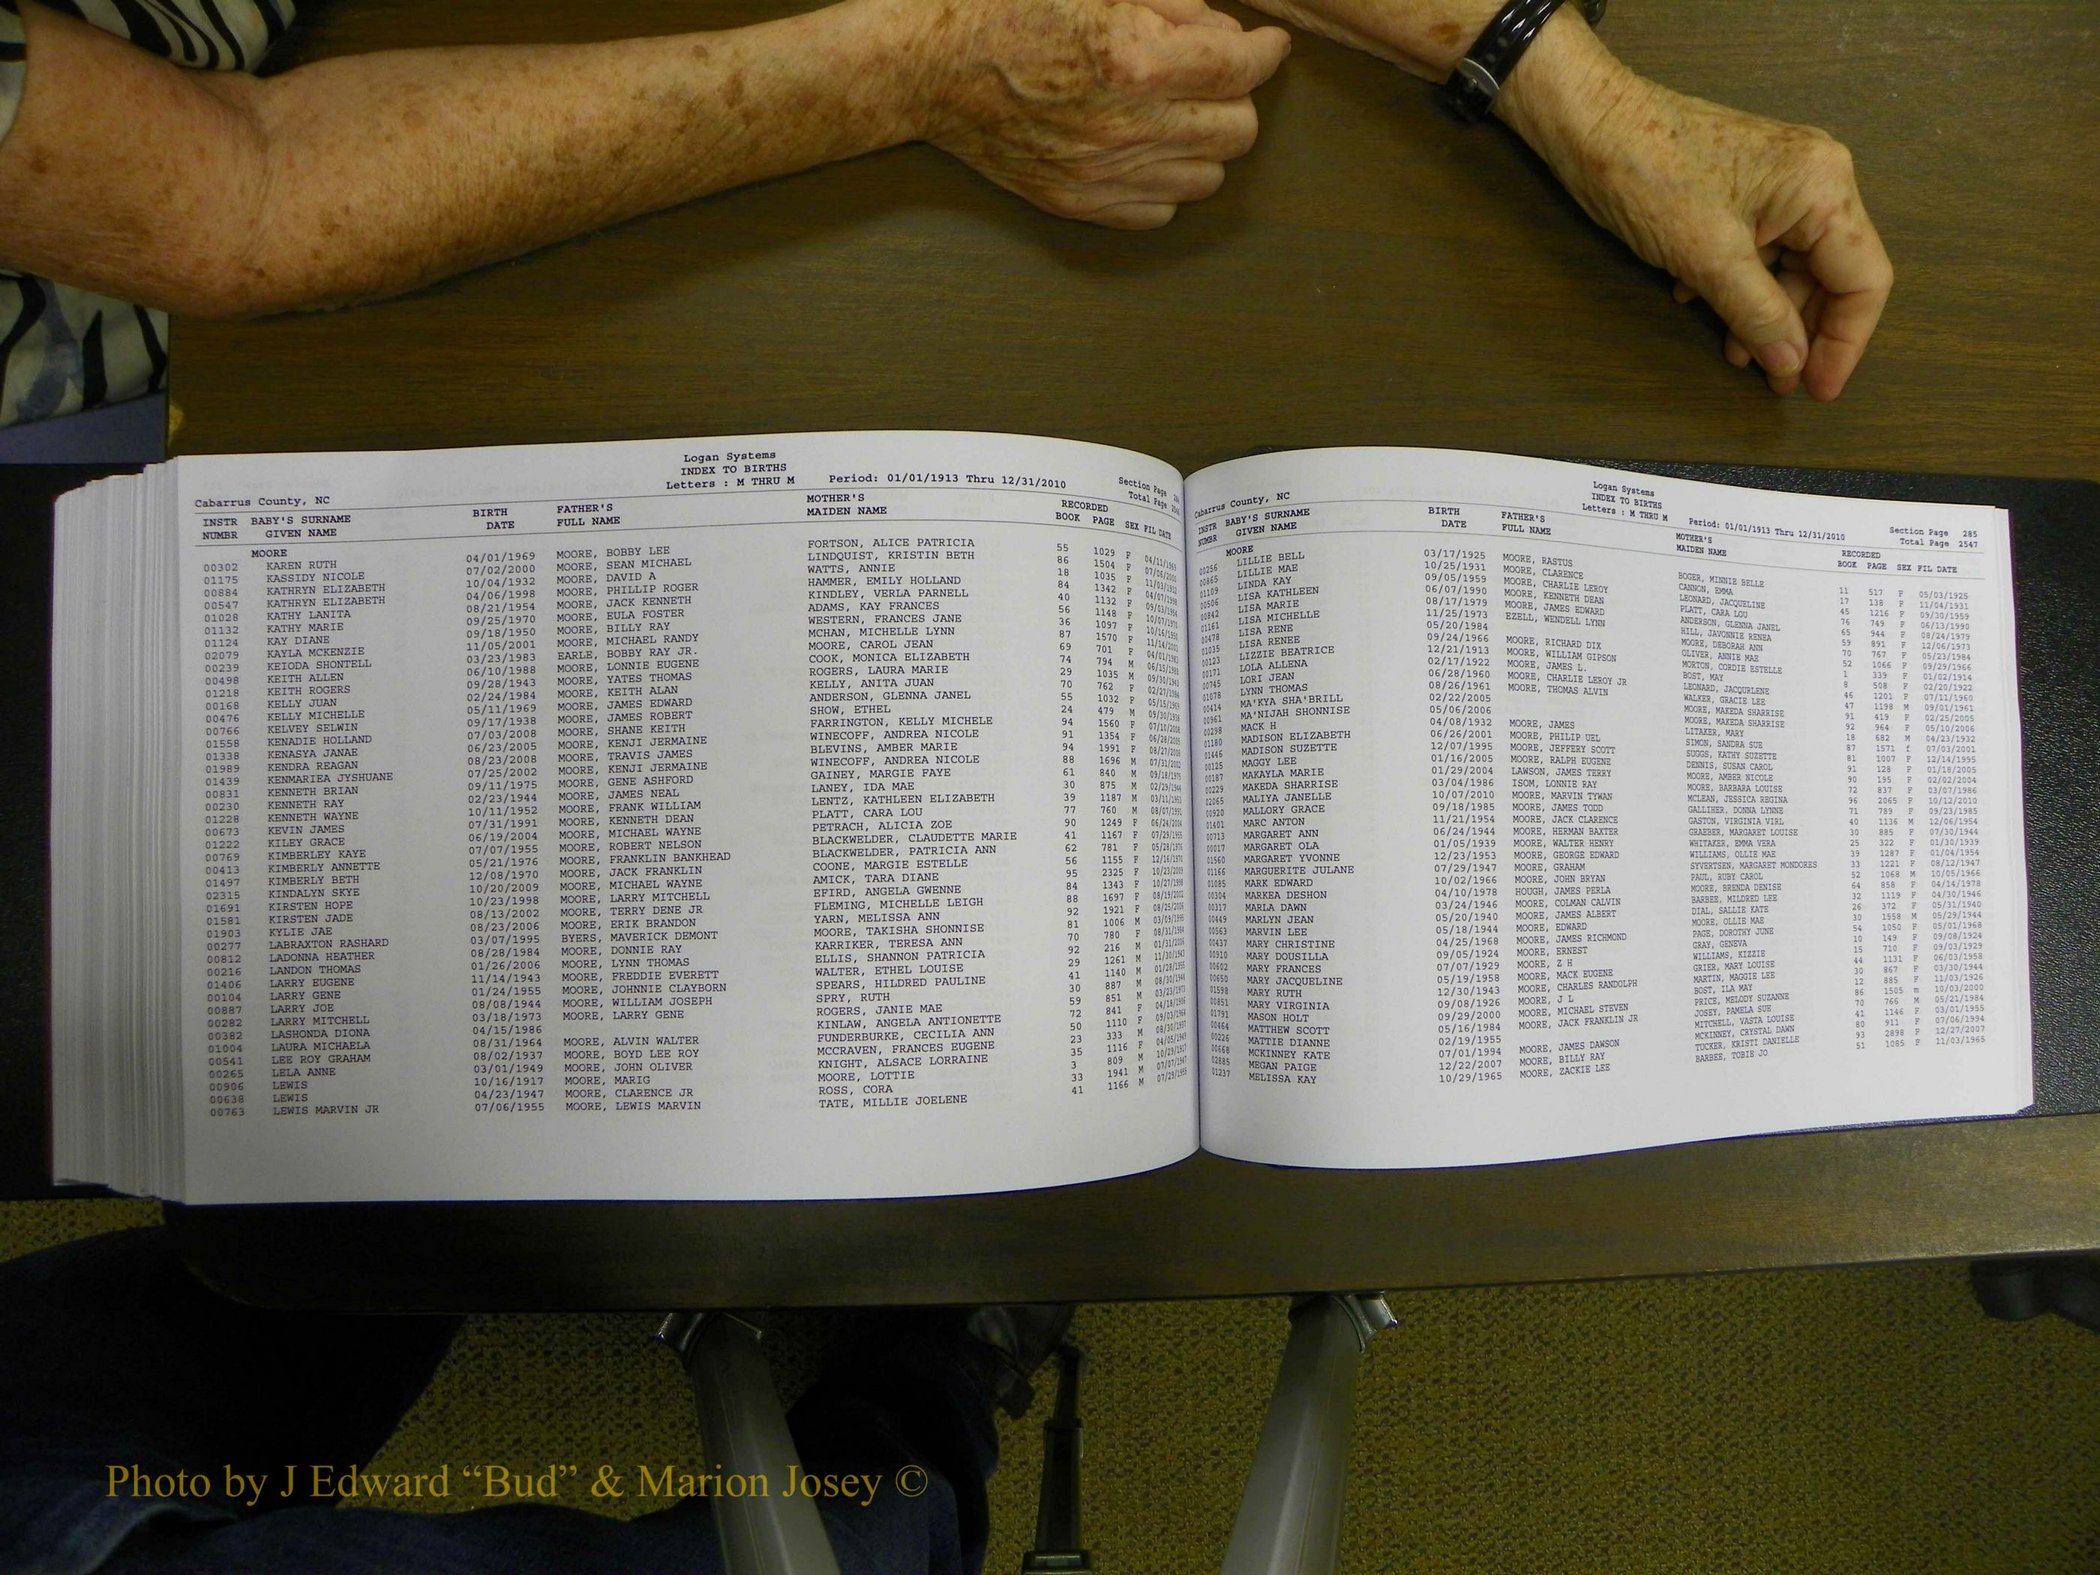 Logan Systems
INDEX TO BIRTHS
Letters : M THRU M Period: 01/01/1913 Thru 12/31/2010
Section Page
Total Page
Cabarrus County, NC
INSTR BABY'S SURNAME BIRTH FATHER'S MOTHER'S RECORDED
NUMBR GIVEN NAME DATE FULL NAME MAIDEN NAME BOOK PAGE SEX FIL DATE
MOORE
00302 KAREN RUTH 04/01/1969 MOORE, BOBBY LEE FORTSON, ALICE PATRICIA 55 1029 F 04/11/1969
01175 KASSIDY NICOLE 07/02/2000 MOORE, SEAN MICHAEL LINDQUIST, KRISTIN BETH 86 1504 F
00884 KATHRYN ELIZABETH 10/04/1932 MOORE, DAVID A WATTS, ANNIE 18 1035 F
00547 KATHRYN ELIZABETH 04/06/1998 MOORE, PHILLIP ROGER HAMMER, EMILY HOLLAND 84 1342 F
01028 KATHY LANITA 08/21/1954 MOORE, JACK KENNETH KINDLEY, VERLA PARNELL 40 1132 F
01132 KATHY MARIE 09/25/1970 MOORE, EULA FOSTER ADAMS, KAY FRANCES 56 1148 F
01124 KAY DIANE 09/18/1950 MOORE, BILLY RAY WESTERN, FRANCES JANE 36 1097 F
02079 KAYLA MCKENZIE 11/05/2001 MOORE, MICHAEL RANDY MCHAN, MICHELLE LYNN 87 1570 F
00239 KEIODA SHONTELL 03/23/1983 EARLE, BOBBY RAY JR. MOORE, CAROL JEAN 69 701 F
00498 KEITH ALLEN 06/10/1988 MOORE, LONNIE EUGENE COOK, MONICA ELIZABETH 74 794 M
01218 KEITH ROGERS 09/28/1943 MOORE, YATES THOMAS ROGERS, LAURA MARIE 29 1035 M
00168 KELLY JUAN 02/24/1984 MOORE, KEITH ALAN KELLY, ANITA JUAN 70 762 F
00476 KELLY MICHELLE 05/11/1969 MOORE, JAMES EDWARD ANDERSON, GLENNA JANEL 55 1032 F
00766 KELVEY SELWIN 09/17/1938 MOORE, JAMES ROBERT SHOW, ETHEL 24 479 M
01558 KENADIE HOLLAND 07/03/2008 MOORE, SHANE KEITH FARRINGTON, KELLY MICHELE 94 1560 F
01338 KENASYA JANAE 06/23/2005 MOORE, KENJI JERMAINE WINECOFF, ANDREA NICOLE 91 1354 F
01989 KENDRA REAGAN 08/23/2008 MOORE, TRAVIS JAMES BLEVINS, AMBER MARIE 94 1991 F
01439 KENMARIEA JYSHUANE 07/25/2002 MOORE, KENJI JERMAINE WINECOFF, ANDREA NICOLE 88 1696 M
00831 KENNETH BRIAN 09/11/1975 MOORE, GENE ASHFORD GAINEY, MARGIE FAYE 61 840 M
00230 KENNETH RAY 02/23/1944 MOORE, JAMES NEAL LANEY, IDA MAE 30 875 M
01228 KENNETH WAYNE 10/11/1952 MOORE, FRANK WILLIAM LENTZ, KATHLEEN ELIZABETH 39 1187 M
00673 KEVIN JAMES 07/31/1991 MOORE, KENNETH DEAN PLATT, CARA LOU 77 760 M
01222 KILEY GRACE 06/19/2004 MOORE, MICHAEL WAYNE PETRACH, ALICIA ZOE 90 1249 F
00769 KIMBERLEY KAYE 07/07/1955 MOORE, ROBERT NELSON BLACKWELDER, CLAUDETTE MARIE 41 1167 F
00413 KIMBERLY ANNETTE 05/21/1976 MOORE, FRANKLIN BANKHEAD BLACKWELDER, PATRICIA ANN 62 781 F
01497 KIMBERLY BETH 12/08/1970 MOORE, JACK FRANKLIN COONE, MARGIE ESTELLE 56 1155 F
02315 KINDALYN SKYE 10/20/2009 MOORE, MICHAEL WAYNE AMICK, TARA DIANE 95 2325 F
01691 KIRSTEN HOPE 10/23/1998 MOORE, LARRY MITCHELL EFIRD, ANGELA GWENNE 84 1343 F
01581 KIRSTEN JADE 08/13/2002 MOORE, TERRY DENE JR FLEMING, MICHELLE LEIGH 88 1697 F
01903 KYLIE JAE 08/23/2006 MOORE, ERIK BRANDON YARN, MELISSA ANN 92 1921 F
00277 LABRAXTON RASHARD 03/07/1995 BYERS, MAVERICK DEMONT MOORE, TAKISHA SHONNISE 81 1006 M
00812 LADONNA HEATHER 08/28/1984 MOORE, DONNIE RAY KARRIKER, TERESA ANN 70 780 F
00216 LANDON THOMAS 01/26/2006 MOORE, LYNN THOMAS ELLIS, SHANNON PATRICIA 92 216 M
01406 LARRY EUGENE 11/14/1943 MOORE, FREDDIE EVERETT WALTER, ETHEL LOUISE 29 1261 M
00104 LARRY GENE 01/24/1955 MOORE, JOHNNIE CLAYBORN SPEARS, HILDRED PAULINE 41 1140 M
00887 LARRY JOE 08/08/1944 MOORE, WILLIAM JOSEPH SPRY, RUTH 30 887 M
00282 LARRY MITCHELL 03/18/1973 MOORE, LARRY GENE ROGERS, JANIE MAE 59 851 M
00382 LASHONDA DIONA 04/15/1986 KINLAW, ANGELA ANTIONETTE 72 841 F
01004 LAURA MICHAELA 08/31/1964 MOORE, ALVIN WALTER FUNDERBURKE, CECILIA ANN 50 1110 F
00541 LEE ROY GRAHAM 08/02/1937 MOORE, BOYD LEE ROY MCCRAVEN, FRANCES EUGENE 23 333 M
00265 LELA ANNE 03/01/1949 MOORE, JOHN OLIVER KNIGHT, ALSACE LORRAINE 35 1116 F
00906 LEWIS 10/16/1917 MOORE, MARIG MOORE, LOTTIE 3 809 M
00638 LEWIS 04/23/1947 MOORE, CLARENCE JR ROSS, CORA 33 1941 M
00763 LEWIS MARVIN JR 07/06/1955 MOORE, LEWIS MARVIN TATE, MILLIE JOELENE 41 1166 M
Logan Systems
INDEX TO BIRTHS
Letters : M THRU M Period: 01/01/1913 Thru 12/31/2010
Section Page 285
Total Page 2547
Cabarrus County, NC
INSTR BABY'S SURNAME BIRTH FATHER'S MOTHER'S RECORDED
NUMBR GIVEN NAME DATE FULL NAME MAIDEN NAME BOOK PAGE SEX FIL DATE
MOORE
00256 LILLIE BELL 03/17/1925 MOORE, RASTUS BOGER, MINNIE BELLE 11 517 F 05/03/1925
00865 LILLIE MAE 10/25/1931 MOORE, CLARENCE CANNON, EMMA 17 138 F 11/04/1931
01109 LINDA KAY 09/05/1959 MOORE, CHARLIE LEROY LEONARD, JACQUELINE 45 1216 F 09/30/1959
00506 LISA KATHLEEN 06/07/1990 MOORE, KENNETH DEAN PLATT, CARA LOU 76 749 F 06/13/1990
00842 LISA MARIE 08/17/1979 MOORE, JAMES EDWARD ANDERSON, GLENNA JANEL 65 944 F 08/24/1979
01161 LISA MICHELLE 11/25/1973 EZELL, WENDELL LYNN HILL, JAVONNIE RENEA 59 891 F 12/06/1973
00478 LISA RENE 05/20/1984 MOORE, DEBORAH ANN 70 767 F 05/23/1984
01035 LISA RENEE 09/24/1966 MOORE, RICHARD DIX OLIVER, ANNIE MAE 52 1066 F 09/29/1966
00123 LIZZIE BEATRICE 12/21/1913 MOORE, WILLIAM GIPSON MORTON, CORDIE ESTELLE 1 339 F 01/02/1914
00171 LOLA ALLENA 02/17/1922 MOORE, JAMES L. BOST, MAY 8 508 F 02/20/1922
00745 LORI JEAN 06/28/1960 MOORE, CHARLIE LEROY JR LEONARD, JACQURLENE 46 1201 F 07/11/1960
01078 LYNN THOMAS 08/26/1961 MOORE, THOMAS ALVIN WALKER, GRACIE LEE 47 1198 M 09/01/1961
00414 MA'KYA SHA'BRILL 02/22/2005 MOORE, MAKEDA SHARRISE 91 419 F 02/25/2005
00961 MA'NIJAH SHONNISE 05/06/2006 MOORE, MAKEDA SHARRISE 92 964 F 05/10/2006
00298 MACK H 04/08/1932 MOORE, JAMES LITAKER, MARY 18 682 M 04/23/1932
01180 MADISON ELIZABETH 06/26/2001 MOORE, PHILIP UEL SIMON, SANDRA SUE 87 1571 f 07/03/2001
01446 MADISON SUZETTE 12/07/1995 MOORE, JEFFERY SCOTT SUGGS, KATHY SUZETTE 81 1007 F 12/14/1995
00125 MAGGY LEE 01/16/2005 MOORE, RALPH EUGENE DENNIS, SUSAN CAROL 91 128 F 01/18/2005
00187 MAKAYLA MARIE 01/29/2004 LAWSON, JAMES TERRY MOORE, AMBER NICOLE 90 195 F 02/02/2004
00229 MAKEDA SHARRISE 03/04/1986 ISOM, LONNIE RAY MOORE, BARBARA LOUISE 72 837 F 03/07/1986
02065 MALIYA JANELLE 10/07/2010 MOORE, MARVIN TYWAN MCLEAN, JESSICA REGINA 96 2065 F 10/12/2010
00920 MALLORY GRACE 09/18/1985 MOORE, JAMES TODD GALLIHER, DONNA LYNNE 71 789 F 09/23/1985
01401 MARC ANTON 11/21/1954 MOORE, JACK CLARENCE GASTON, VIRGINIA VIRL 40 1136 M 12/06/1954
00713 MARGARET ANN 06/24/1944 MOORE, HERMAN BAXTER GRAEBER, MARGARET LOUISE 30 885 F 07/30/1944
00017 MARGARET OLA 01/05/1939 MOORE, WALTER HENRY WHITAKER, EMMA VERA 25 322 F 01/30/1939
01560 MARGARET YVONNE 12/23/1953 MOORE, GEORGE EDWARD WILLIAMS, OLLIE MAE 39 1287 F 01/04/1954
01166 MARGUERITE JULANE 07/29/1947 MOORE, GRAHAM SYVERTSEN, MARGARET MONDORES 33 1221 F 08/12/1947
01085 MARK EDWARD 10/02/1966 MOORE, JOHN BRYAN PAUL, RUBY CAROL 52 1068 M 10/05/1966
00304 MARKEA DESHON 04/10/1978 HOUGH, JAMES PERLA MOORE, BRENDA DENISE 64 858 F 04/14/1978
00317 MARLA DAWN 03/24/1946 MOORE, COLMAN CALVIN BARBEE, MILDRED LEE 32 1119 F 04/30/1946
00449 MARLYN JEAN 05/20/1940 MOORE, JAMES ALBERT DIAL, SALLIE KATE 26 372 F 05/31/1940
00563 MARVIN LEE 05/18/1944 MOORE, EDWARD MOORE, OLLIE MAE 30 1558 M 05/29/1944
00437 MARY CHRISTINE 04/25/1968 MOORE, JAMES RICHMOND PAGE, DOROTHY JUNE 54 1050 F 05/01/1968
00910 MARY DOUSILLA 09/05/1924 MOORE, ERNEST GRAY, GENEVA 10 149 F 09/08/1924
00602 MARY FRANCES 07/07/1929 MOORE, Z H WILLIAMS, KIZZIE 15 710 F 09/03/1929
00650 MARY JACQUELINE 05/19/1958 MOORE, MACK EUGENE GRIER, MARY LOUISE 44 1131 F 06/03/1958
01598 MARY RUTH 12/30/1943 MOORE, CHARLES RANDOLPH MARTIN, MAGGIE LEE 30 867 F 03/30/1944
00851 MARY VIRGINIA 09/08/1926 MOORE, J L BOST, ILA MAY 12 885 F 11/03/1926
01791 MASON HOLT 09/29/2000 MOORE, MICHAEL STEVEN PRICE, MELODY SUZANNE 86 1505 m 10/03/2000
00464 MATTHEW SCOTT 05/16/1984 MOORE, JACK FRANKLIN JR JOSEY, PAMELA SUE 70 766 M 05/21/1984
00226 MATTIE DIANNE 02/19/1955 MITCHELL, VASTA LOUISE 41 1146 F 03/01/1955
00668 MCKINNEY KATE 07/01/1994 MOORE, JAMES DAWSON MCKINNEY, CRYSTAL DAWN 80 911 F 07/06/1994
02885 MEGAN PAIGE 12/22/2007 MOORE, BILLY RAY TUCKER, KRISTI DANIELLE 93 2898 F 12/27/2007
01237 MELISSA KAY 10/29/1965 MOORE, ZACKIE LEE BARBEE, TOBIE JO 51 1085 F 11/03/1965
Photo by J Edward “Bud” & Marion Josey ©